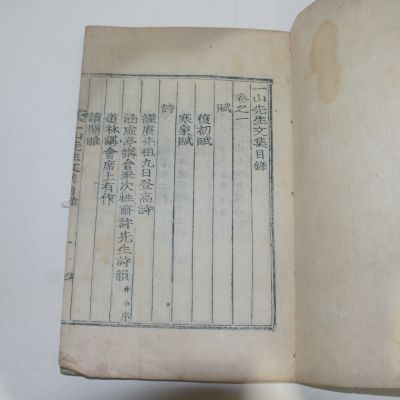 一山先生文集目錄
卷之一
賦
復初賦
寒泉賦
詩
謹賡先祖九日登高詩
涵虛亭講會參次性齋許先生詩韻 幷小序
道林講會席上有作
讀關雎
一山先生文集目錄 一